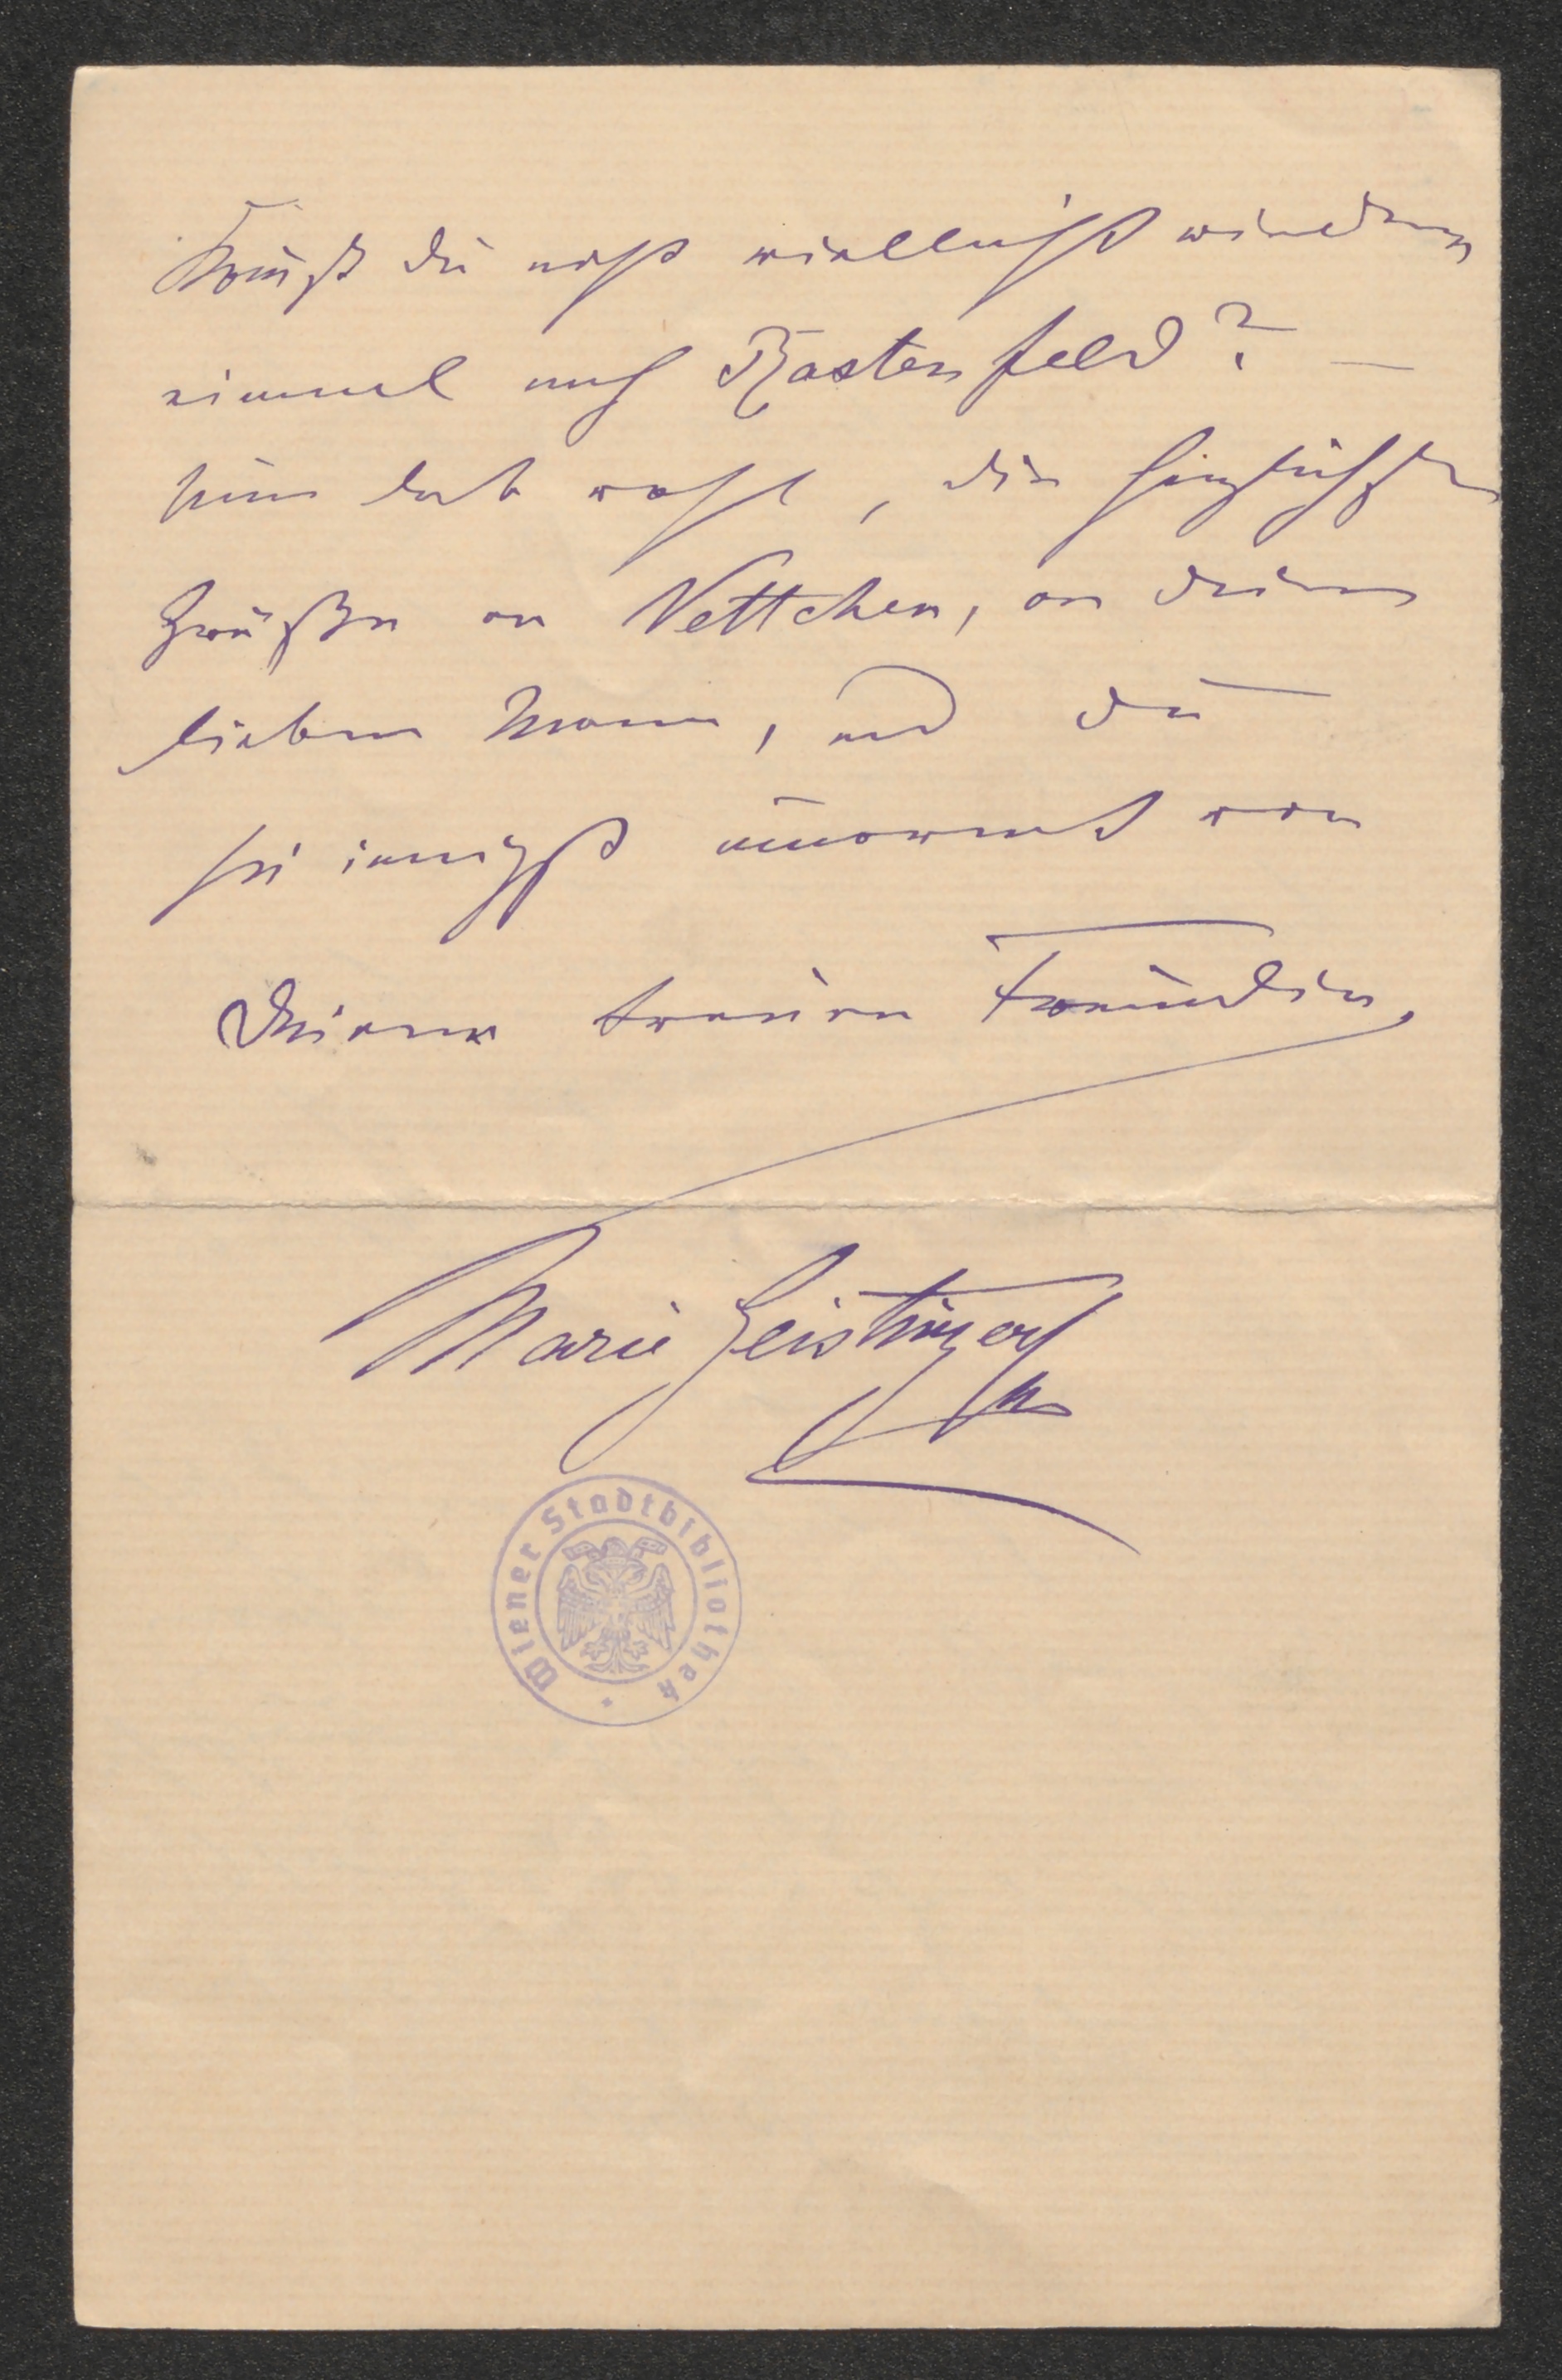 Komst du nicht vielleicht wieder
einmal nach Rastenfeld? —
Nun leb wohl, die herzlichsten
Grüße an Nettchen, an deinen
lieben Mann, und du
sei innigst umarmt von
Deiner treuen Freundin,
Marie Geistinger
Wiener Stadtbibliothek